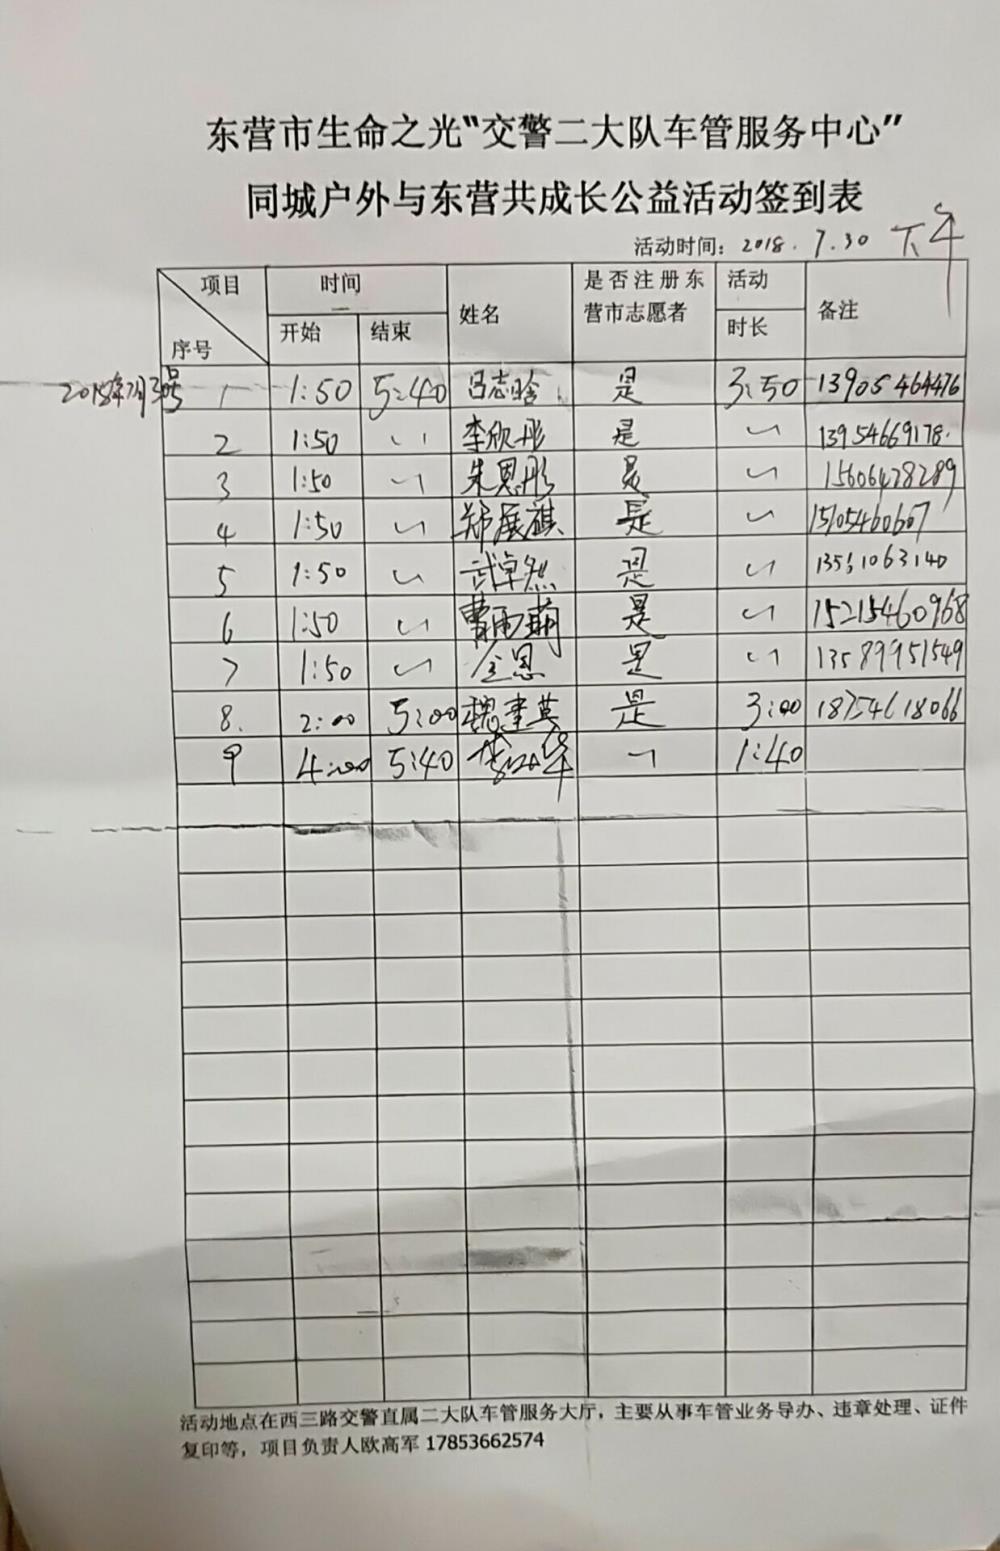 东营市生命之光“交警二大队车管服务中心”
同城户外与东营共成长公益活动签到表
活动时间：2018.7.30 下午
项目 时间 姓名 是否注册东营市志愿者 活动时长 备注
序号 开始 结束
2018年7月30号 1 1:50 5:40 吕志晗 是 3:50 13905464476
2 1:50 〃 李欣彤 是 〃 13954669178
3 1:50 〃 朱恩彤 是 〃 15606478289
4 1:50 〃 郑展祺 是 〃 15105460607
5 1:50 〃 武卓然 是 〃 13561063140
6 1:50 〃 曹雨萌 是 〃 15215460968
7 1:50 〃 金恩 是 〃 13589951549
8. 2:00 5:00 魏建英 是 3:00 18754618066
9 4:00 5:40 〃 1:40
活动地点在西三路交警直属二大队车管服务大厅，主要从事车管业务导办、违章处理、证件
复印等，项目负责人欧高军 17853662574